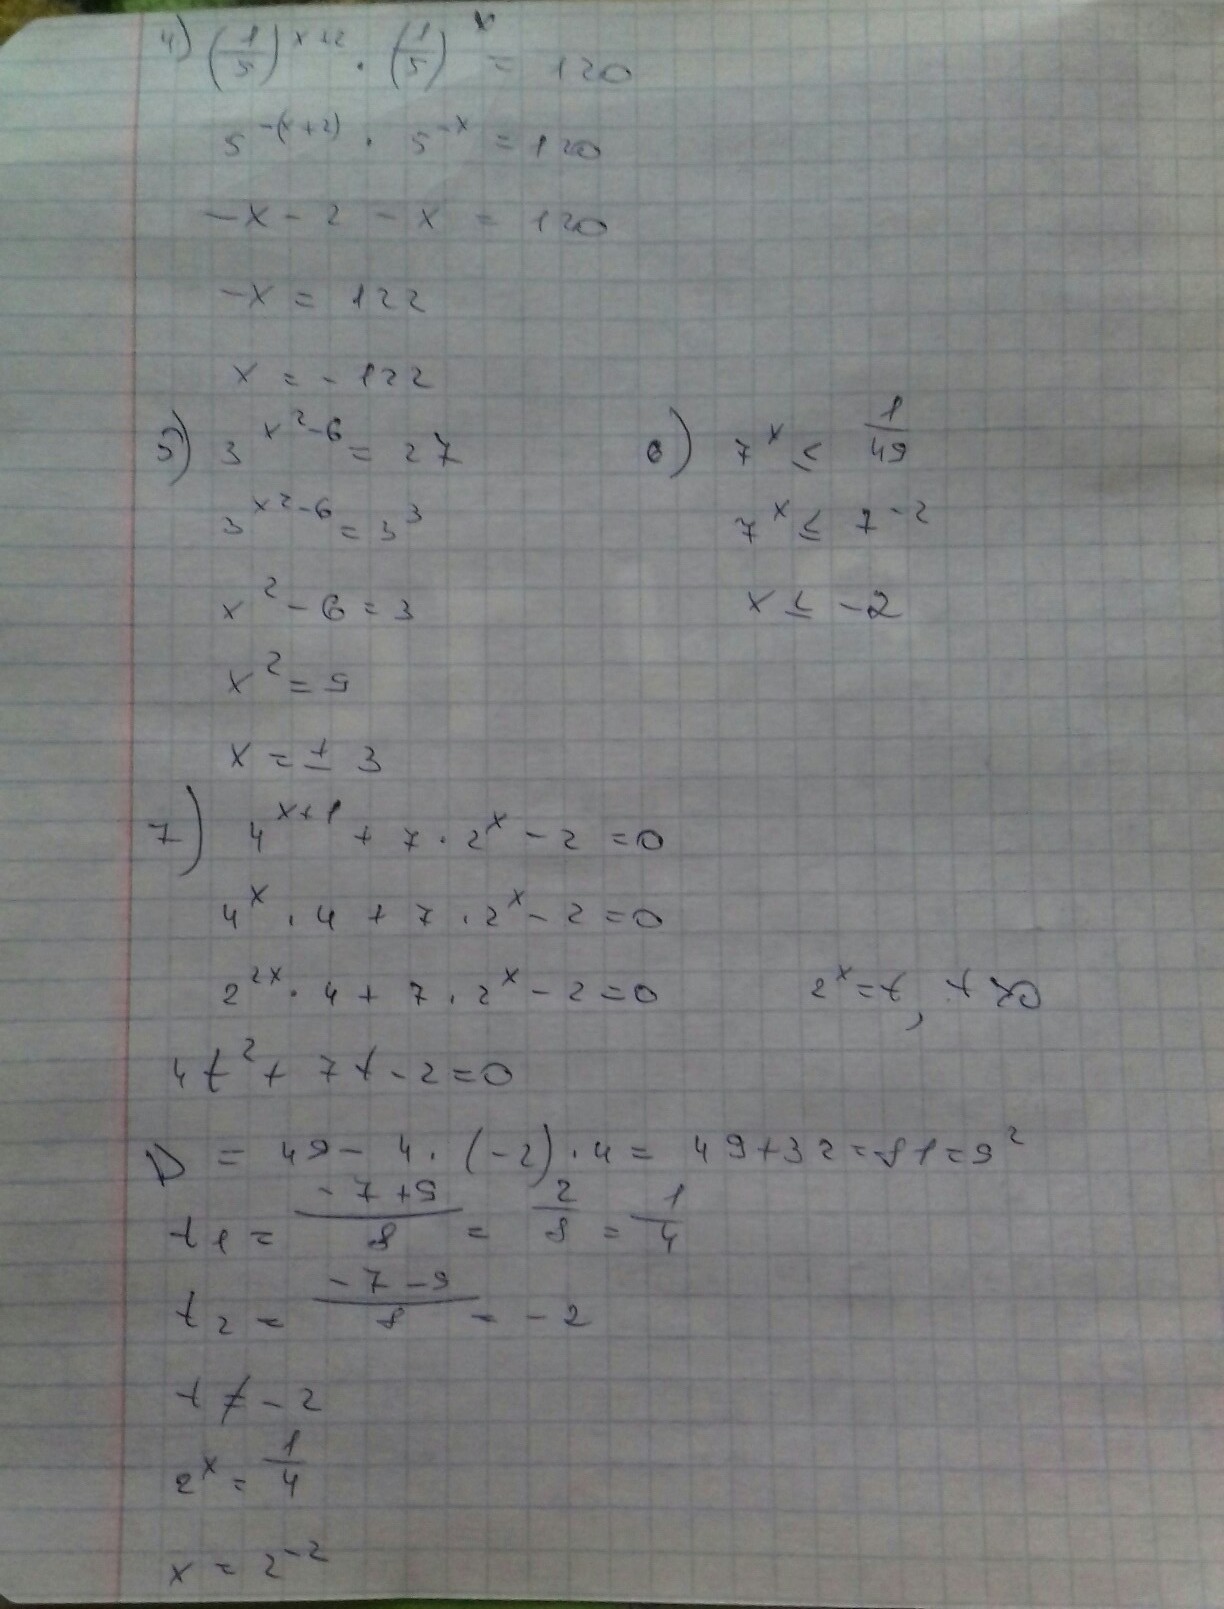 4) (1/5)^(x+2) · (1/5)^x = 120
5^(-(x+2)) · 5^(-x) = 120
-x - 2 - x = 120
-x = 122
x = -122
5) 3^(x^2-6) = 27
3^(x^2-6) = 3^3
x^2 - 6 = 3
x^2 = 9
x = ± 3
6) 7^x ≤ 1/49
7^x ≤ 7^(-2)
x ≤ -2
7) 4^(x+1) + 7 · 2^x - 2 = 0
4^x · 4 + 7 · 2^x - 2 = 0
2^(2x) · 4 + 7 · 2^x - 2 = 0 2^x = t, t > 0
4t^2 + 7t - 2 = 0
D = 49 - 4 · (-2) · 4 = 49 + 32 = 81 = 9^2
t1 = (-7+9)/8 = 2/8 = 1/4
t2 = (-7-9)/8 = -2
t ≠ -2
2^x = 1/4
x = 2^(-2)